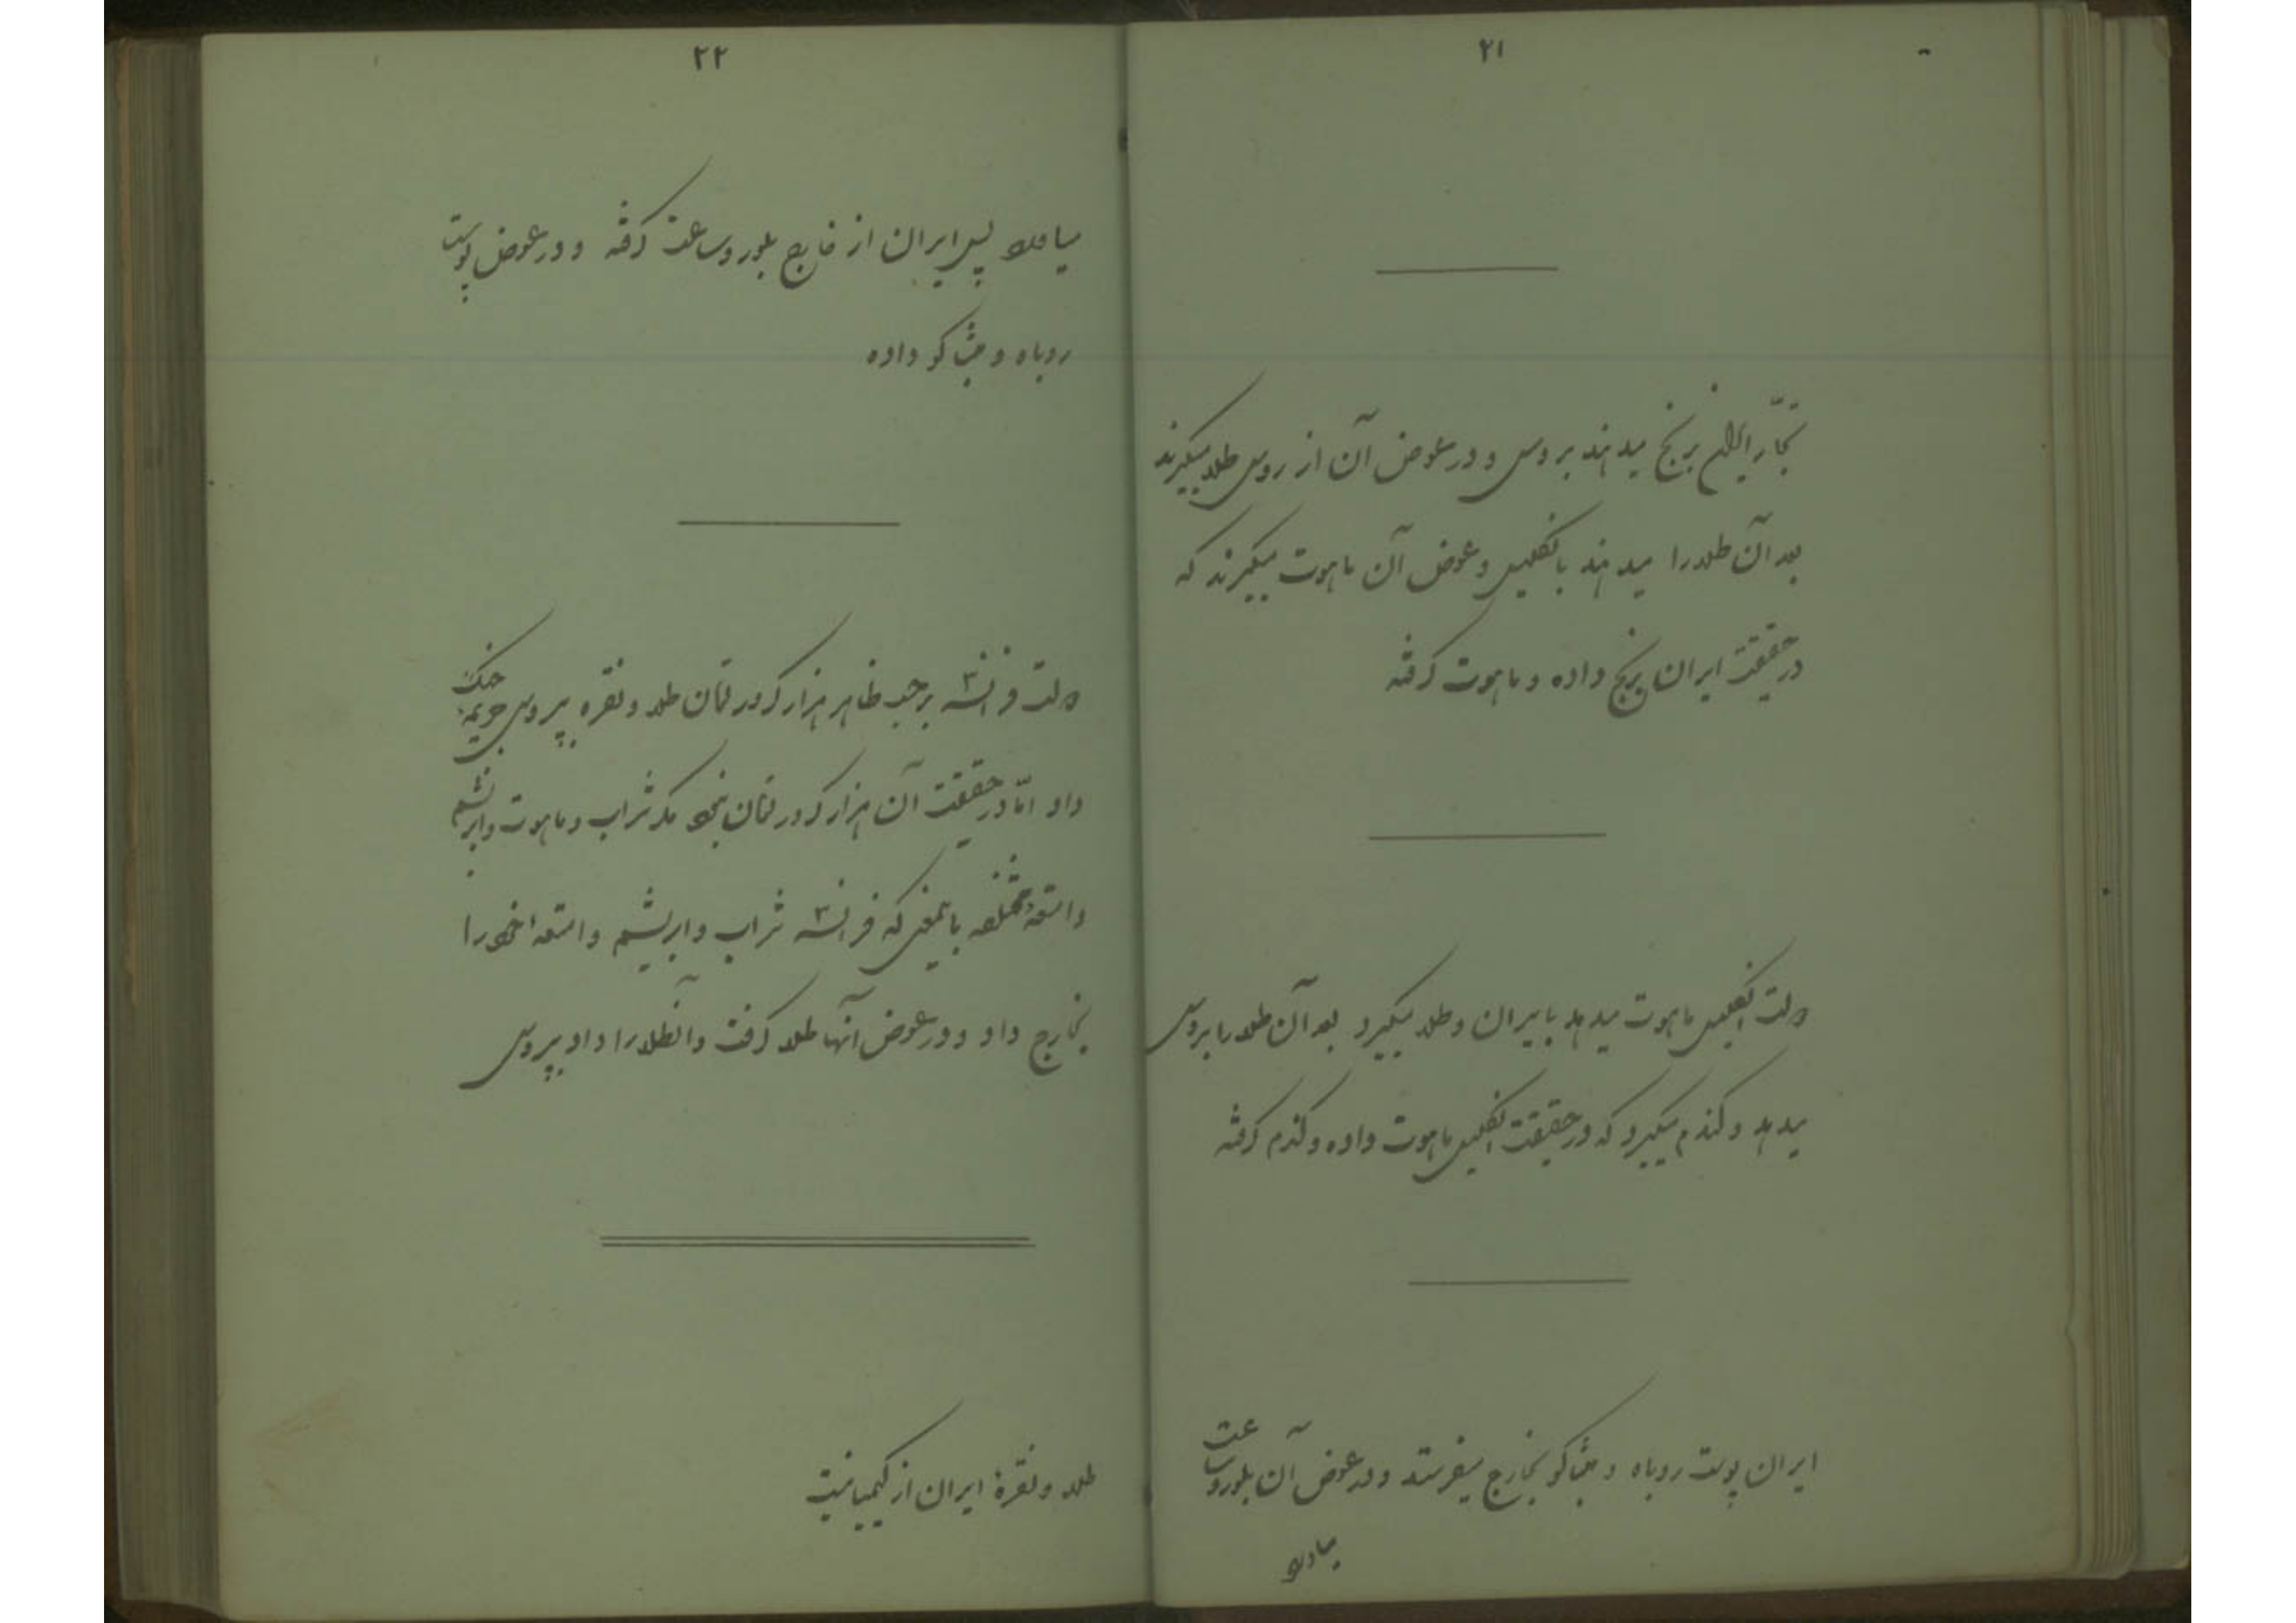 ۲۱
تجّار ایران برنج میدهند بروس و در عوض آن از روس طلا میگیرند
بعد آن طلا را میدهند بانگلیس و عوض آن ماهوت میگیرند که
در حقیقت ایران برنج داده و ماهوت گرفته
دولت انگلیس ماهوت میدهد بایران و طلا میگیرد بعد آن طلا را بروس
میدهد و گندم میگیرد که در حقیقت انگلیس ماهوت داده و گندم گرفته
ایران پوست روباه و تنباکو بخارج میفرستد و در عوض آن بلور و ساعت
میاورد
۲۲
میاورد پس ایران از خارج بلور و ساعت گرفته و در عوض پوست
روباه و تنباکو داده
دولت فرانسه بر حسب ظاهر هزار کرور تومان طلا و نقره به پروس جریمهٔ جنگ
داد امّا در حقیقت آن هزار کرور تومان نبود مگر شراب و ماهوت و ابریشم
و امتعهٔ مختلفه باینمعنی که فرانسه شراب و ابریشم و امتعهٔ خود را
بخارج داد و در عوض آنها طلا گرفت و آنطلا را داد به پروس
طلا و نقرهٔ ایران از کیمیا نیست